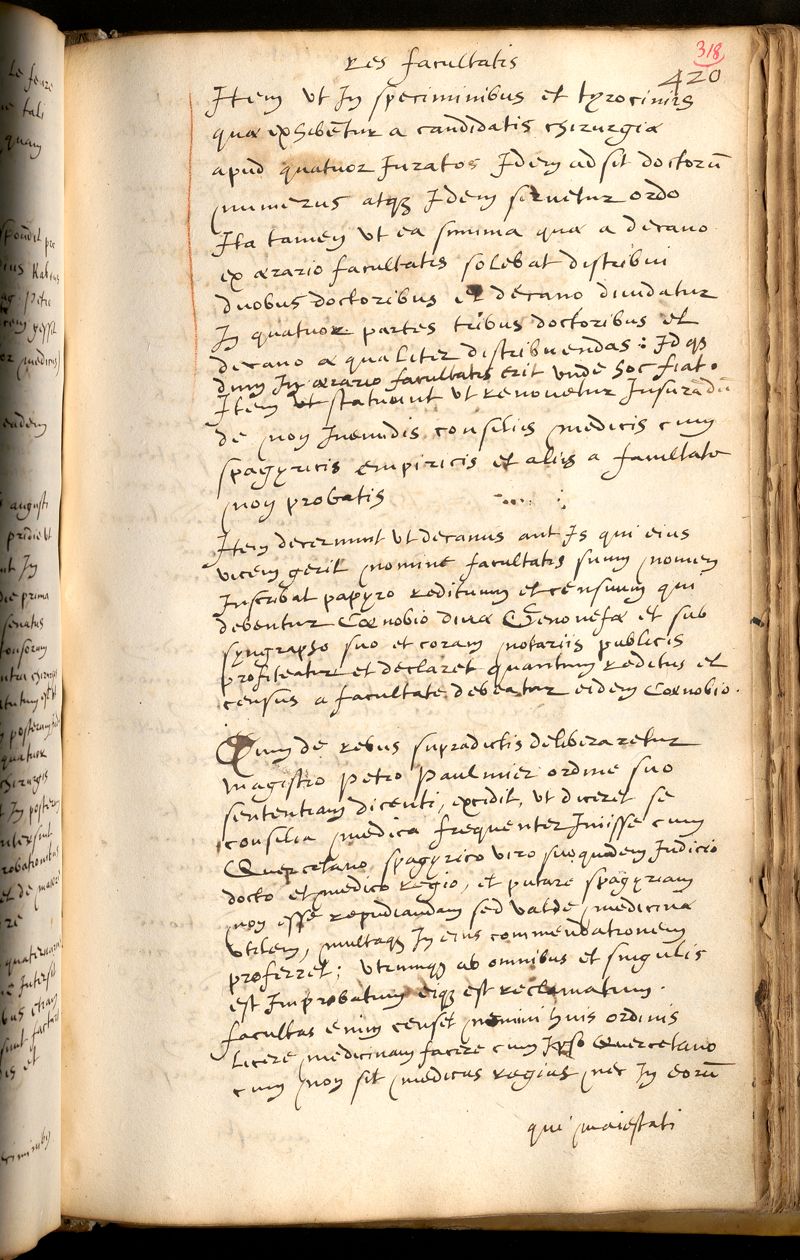 res facultatis
318
420
Item ut In speciminibus et tyrociniis
quæ exhibentur a candidatis chirurgiæ
apud quatuor Iuratos Idem adsit doctorū
numerus atq3 Idem servetur ordo
Ita tamen ut ea summa quæ a decano
ex ærario facultatis solebat distribui
duobus doctoribus et decano dividatur
In quatuor partes tribus doctoribus et
decano æqualiter distribuendas : Idq3
dum In ærario facultatis erit unde hoc fiat.
Item ut statuunt ut renovetur Insurandū
de non Ineundis consiliis medicis cum
spagyricis empiricis et aliis a facultate
non probatis
Item decernunt ut decanus aut Is qui eius
vicem gerit nomine facultatis suum nomen
Inscribat papyro redituum et censuum qui
debentur Cœnobio divæ Genovefæ et sub
syngrapho suo et coram notariis publicis
profiteatur et declaret quantum reditus et
census a facultate debeatur eidem Cœnobio.
Quum de rebus supradictis deliberaretur
magistro Petro Paulmier ordine suo
sententiam dicenti, excidit, ut diceret se
consilia medica frequenter Iniisse cum
Quercetano spagyrico viro suo quidem Iudicio
docto et medico regio, et putare spagyriam
non esse repudiandam sed valde medicinæ
utilem, multaq3 In eius commendationem
proferret ; utrumq3 ab omnibus et singulis
est Improbatum eiq3 est reclamatum.
facultas enim censet nemini huis ordinis
licere medicinam facere cum Ipso Quercetano
cum non sit medicus regius nec In eorū
qui maiestati